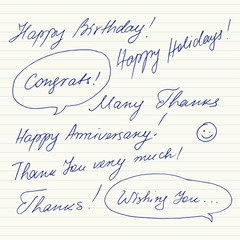 Happy Birthday!
Happy Holidays!
Congrats!
Many Thanks
Happy Anniversary!
Thank You very much!
Thanks!
Wishing You...